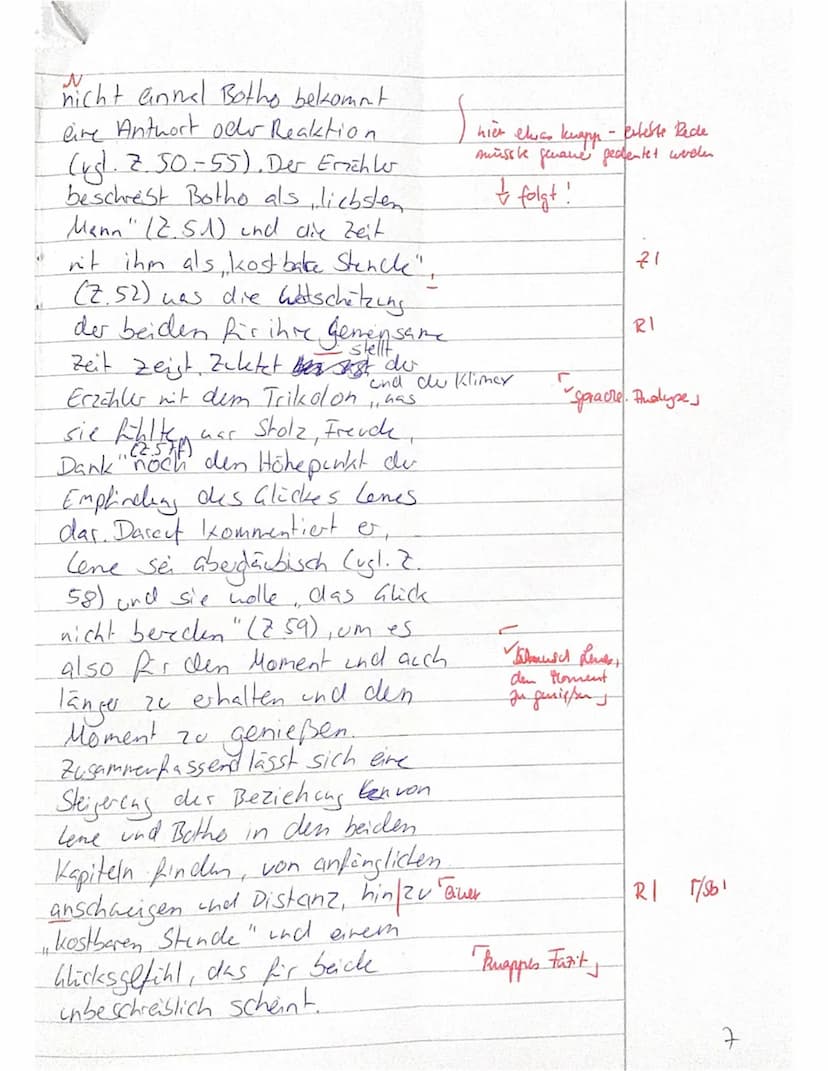 N
nicht einmal Botho bekommt
eine Antwort oder Reaktion
(vgl. Z. 50-55). Der Erzähler
beschreibt Botho als „liebsten
Mann" (Z. 51) und die Zeit
mit ihm als „kostbare Stunde",
(Z. 52) was die Wertschätzung
der beiden für ihre gemeinsame
Zeit zeigt. Zuletzt stellt der
Erzähler mit dem Trikolon und der Klimax „was
sie fühlte, war Stolz, Freude,
Dank" (Z. 57f) noch den Höhepunkt der
Empfindung des Glückes Lenes
dar. Darauf kommentiert er,
Lene sei abergläubisch (vgl. Z.
58) und sie wolle „das Glück
nicht bereden" (Z. 59), um es
also für den Moment und auch
länger zu erhalten und den
Moment zu genießen.
Zusammenfassend lässt sich eine
Steigerung der Beziehung von
Lene und Botho in den beiden
Kapiteln finden, von anfänglichen
anschweigen und Distanz, hin|zu einer
„kostbaren Stunde" und einem
Glücksgefühl, das für beide
unbeschreiblich scheint.
hier etwas knapp - erlebte Rede
müsste genauer gedeutet werden
↓ folgt!
Z |
R |
sprachl. Analyse
Lenes,
den Moment
zu genießen
R |
knappes Fazit
7